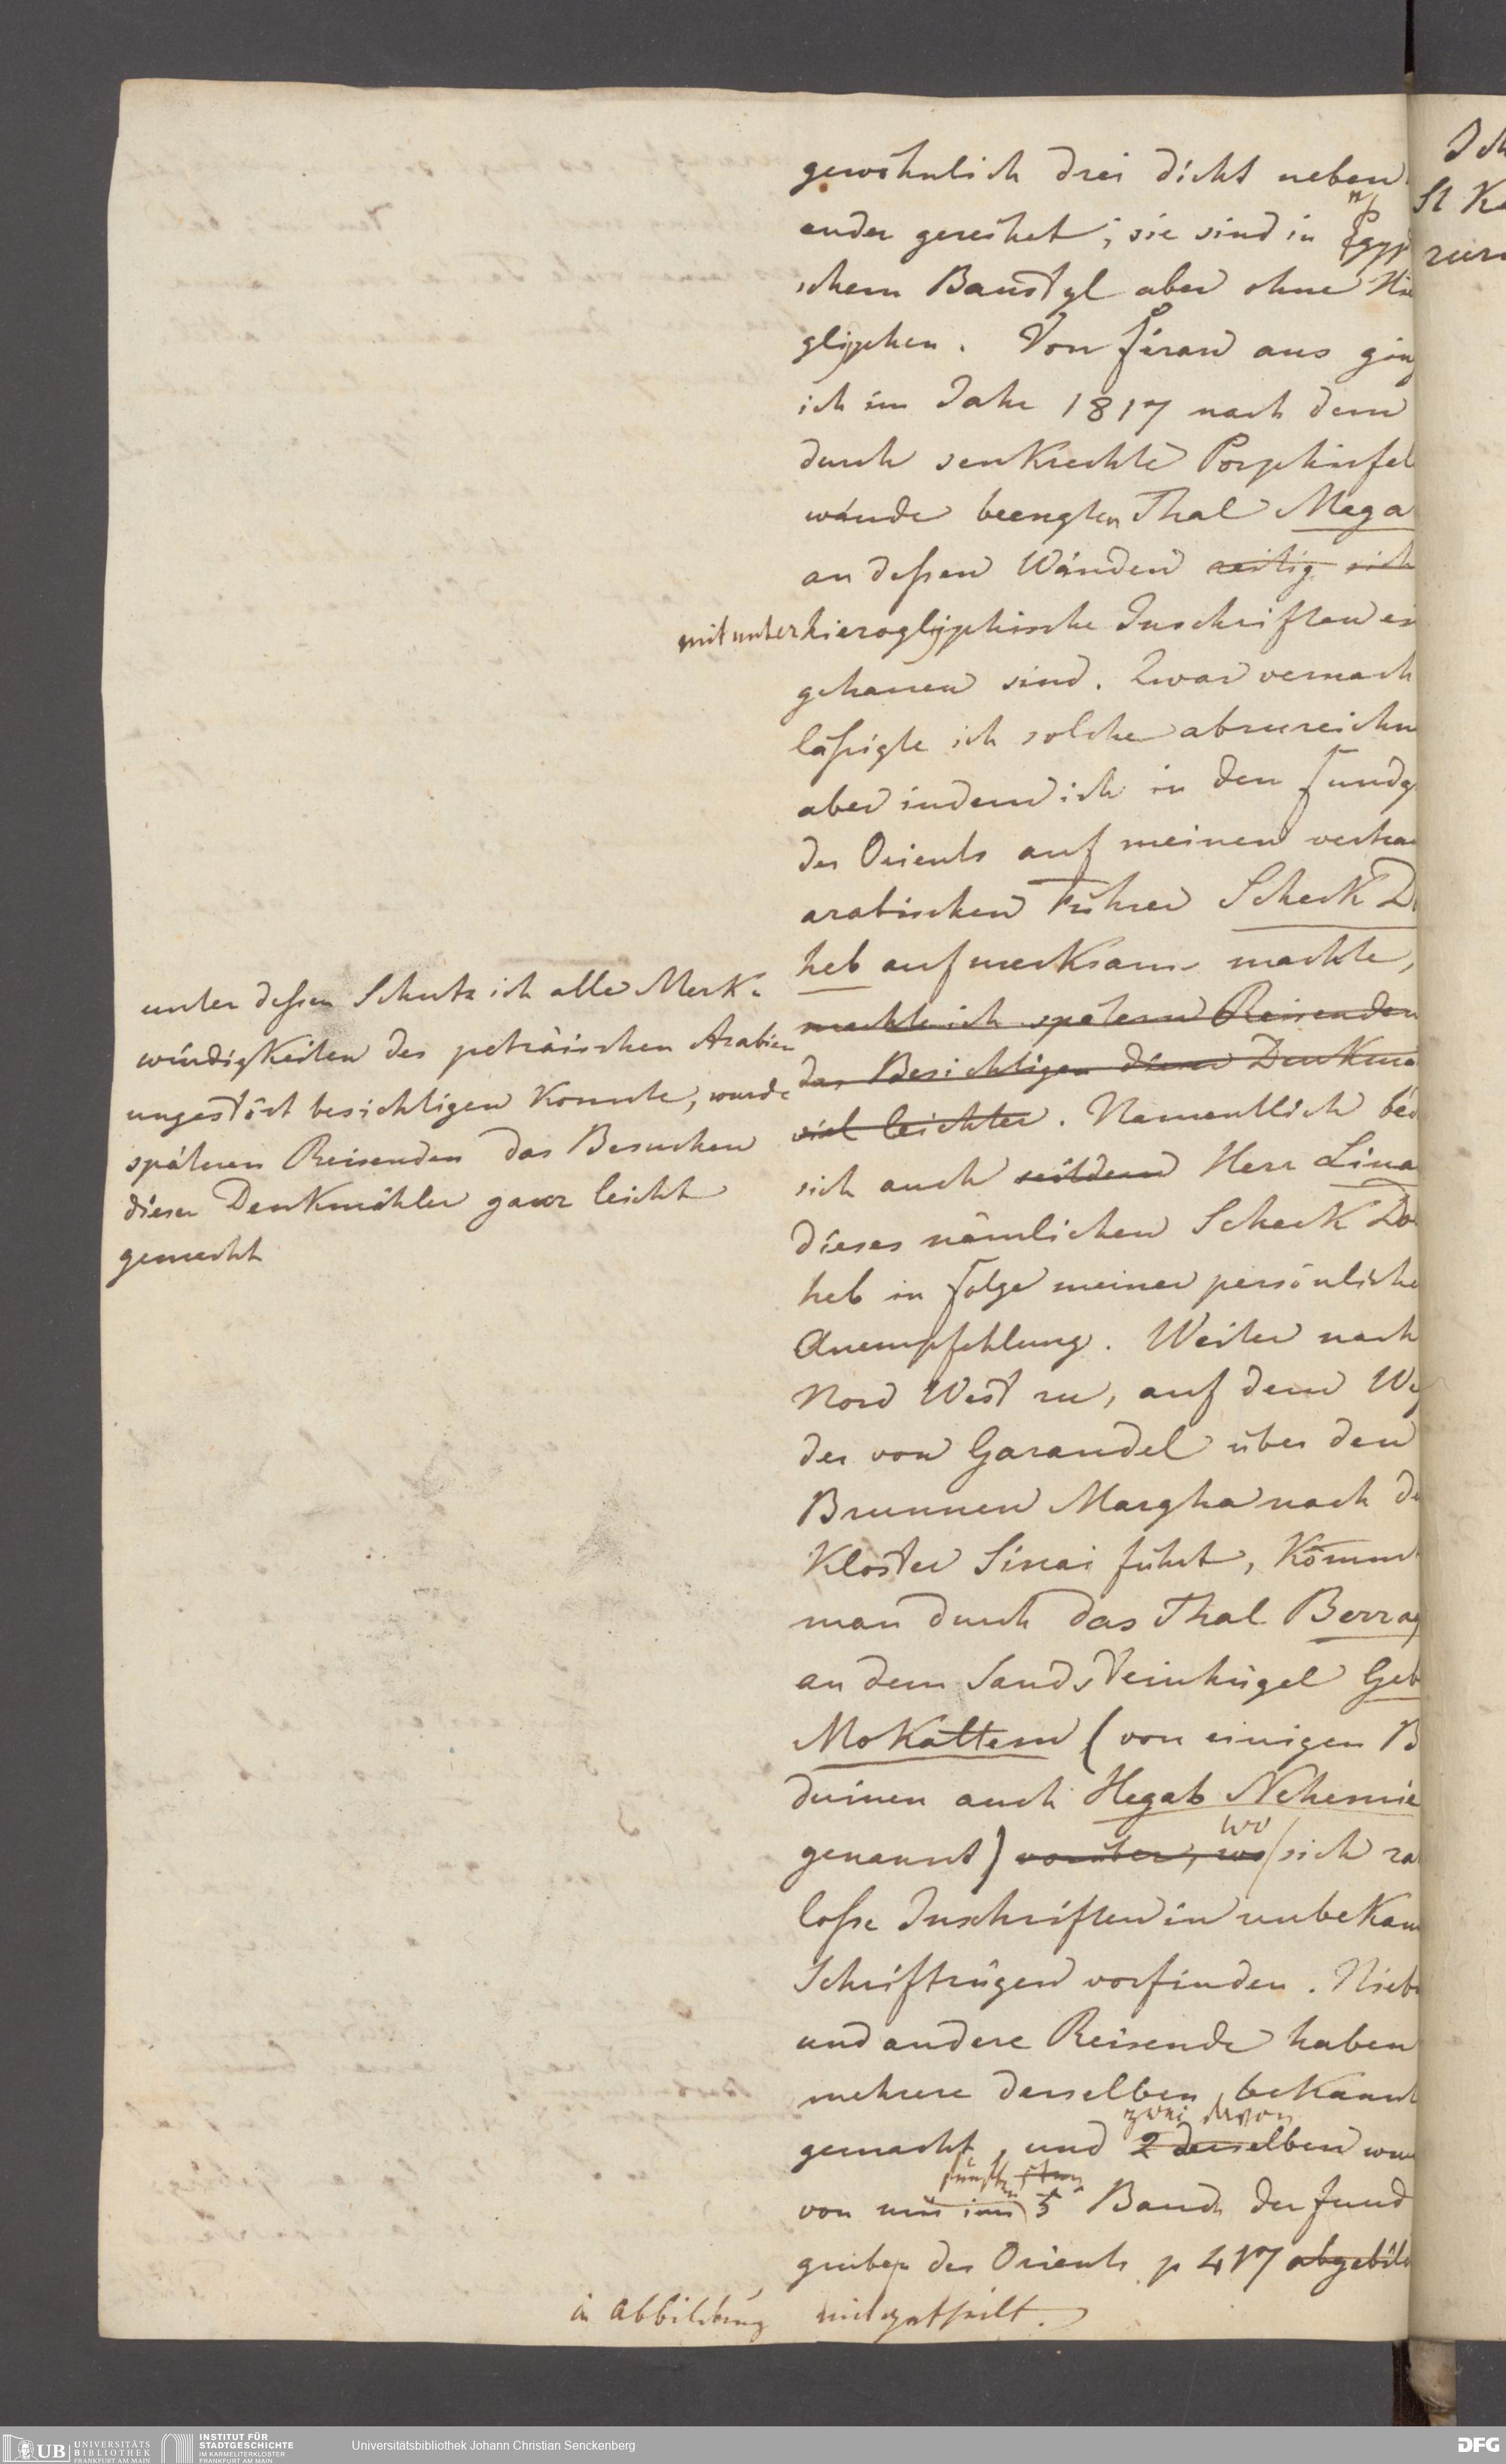 gewöhnlich drei dicht neben
ander gereihet; sie sind in Egyp
schem Baustyl aber ohne Hie
glyphen. Von Firan aus ging
ich im Jahr 1817 nach dem
durch senkrechte Porphirfel
wände beengten Thal Maga
an deßen Wänden zeitig sich
mitunter hieroglyphische Inschriften ei
gehauen sind. Zwar vernach
läßigte ich solche abzuzeichn
aber indem ich in den Fundg
des Orients auf meinen vertrau
arabischen Führer Scheck D
heb aufmerksam machte,
machte ich spätern Reisenden
das Besichtigen dieser Denkmä
viel leichter. Namentlich bed
sich auch seitdem Herr Lina
dieses nämlichen Scheck Do
heb in Folge meiner persönliche
Anempfehlung. Weiter nach
Nord West zu, auf dem We
der von Garandel über den
Brunnen Margha nach de
Kloster Sinai führt, kömmt
man durch das Thal Berrag
an dem Sandsteinhügel Geb
Mokattem (von einigen B
duinen auch Hegab Nehemie
genannt) vorüber, wo wo sich za
loße Inschriften in unbekan
Schriftzügen vorfinden. Nieb
und andere Reisende haben
mehrere derselben bekannt
gemacht, und 2 derselben zwei davon wu
von mir im 5 fünften Band der Fund
gruben des Orients p 417 abgebild
in Abbildung mitgetheilt.
unter deßen Schutz ich alle Merk-
würdigkeiten des peträischen Arabien
ungestört besichtigen konnte, wurde
spätern Reisenden das Besuchen
dieser Denkmähler ganz leicht
gemacht
Ich
St Ka
zur
UB UNIVERSITÄTS
BIBLIOTHEK
FRANKFURT AM MAIN
INSTITUT FÜR
STADTGESCHICHTE
IM KARMELITERKLOSTER
FRANKFURT AM MAIN
Universitätsbibliothek Johann Christian Senckenberg
DFG